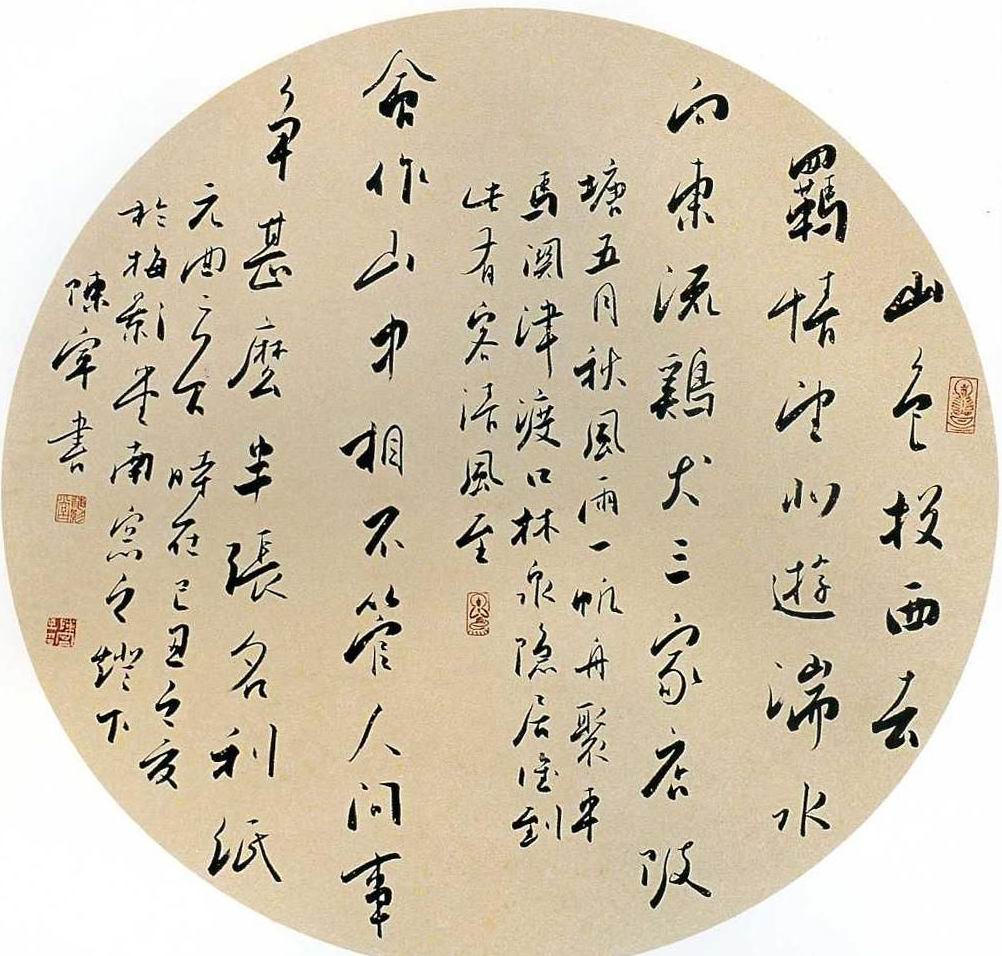 山色投西去
羈情望北遊湍水
向東流鷄犬三家店陂
塘五月秋風雨一帆舟聚車
馬関津渡口林泉隐居誰到
此有客清風至
會作山中相不管人間事
爭甚麽半張名利紙
元曲 時在己丑之夜
於梅影堂南窓之燈下
陳 書